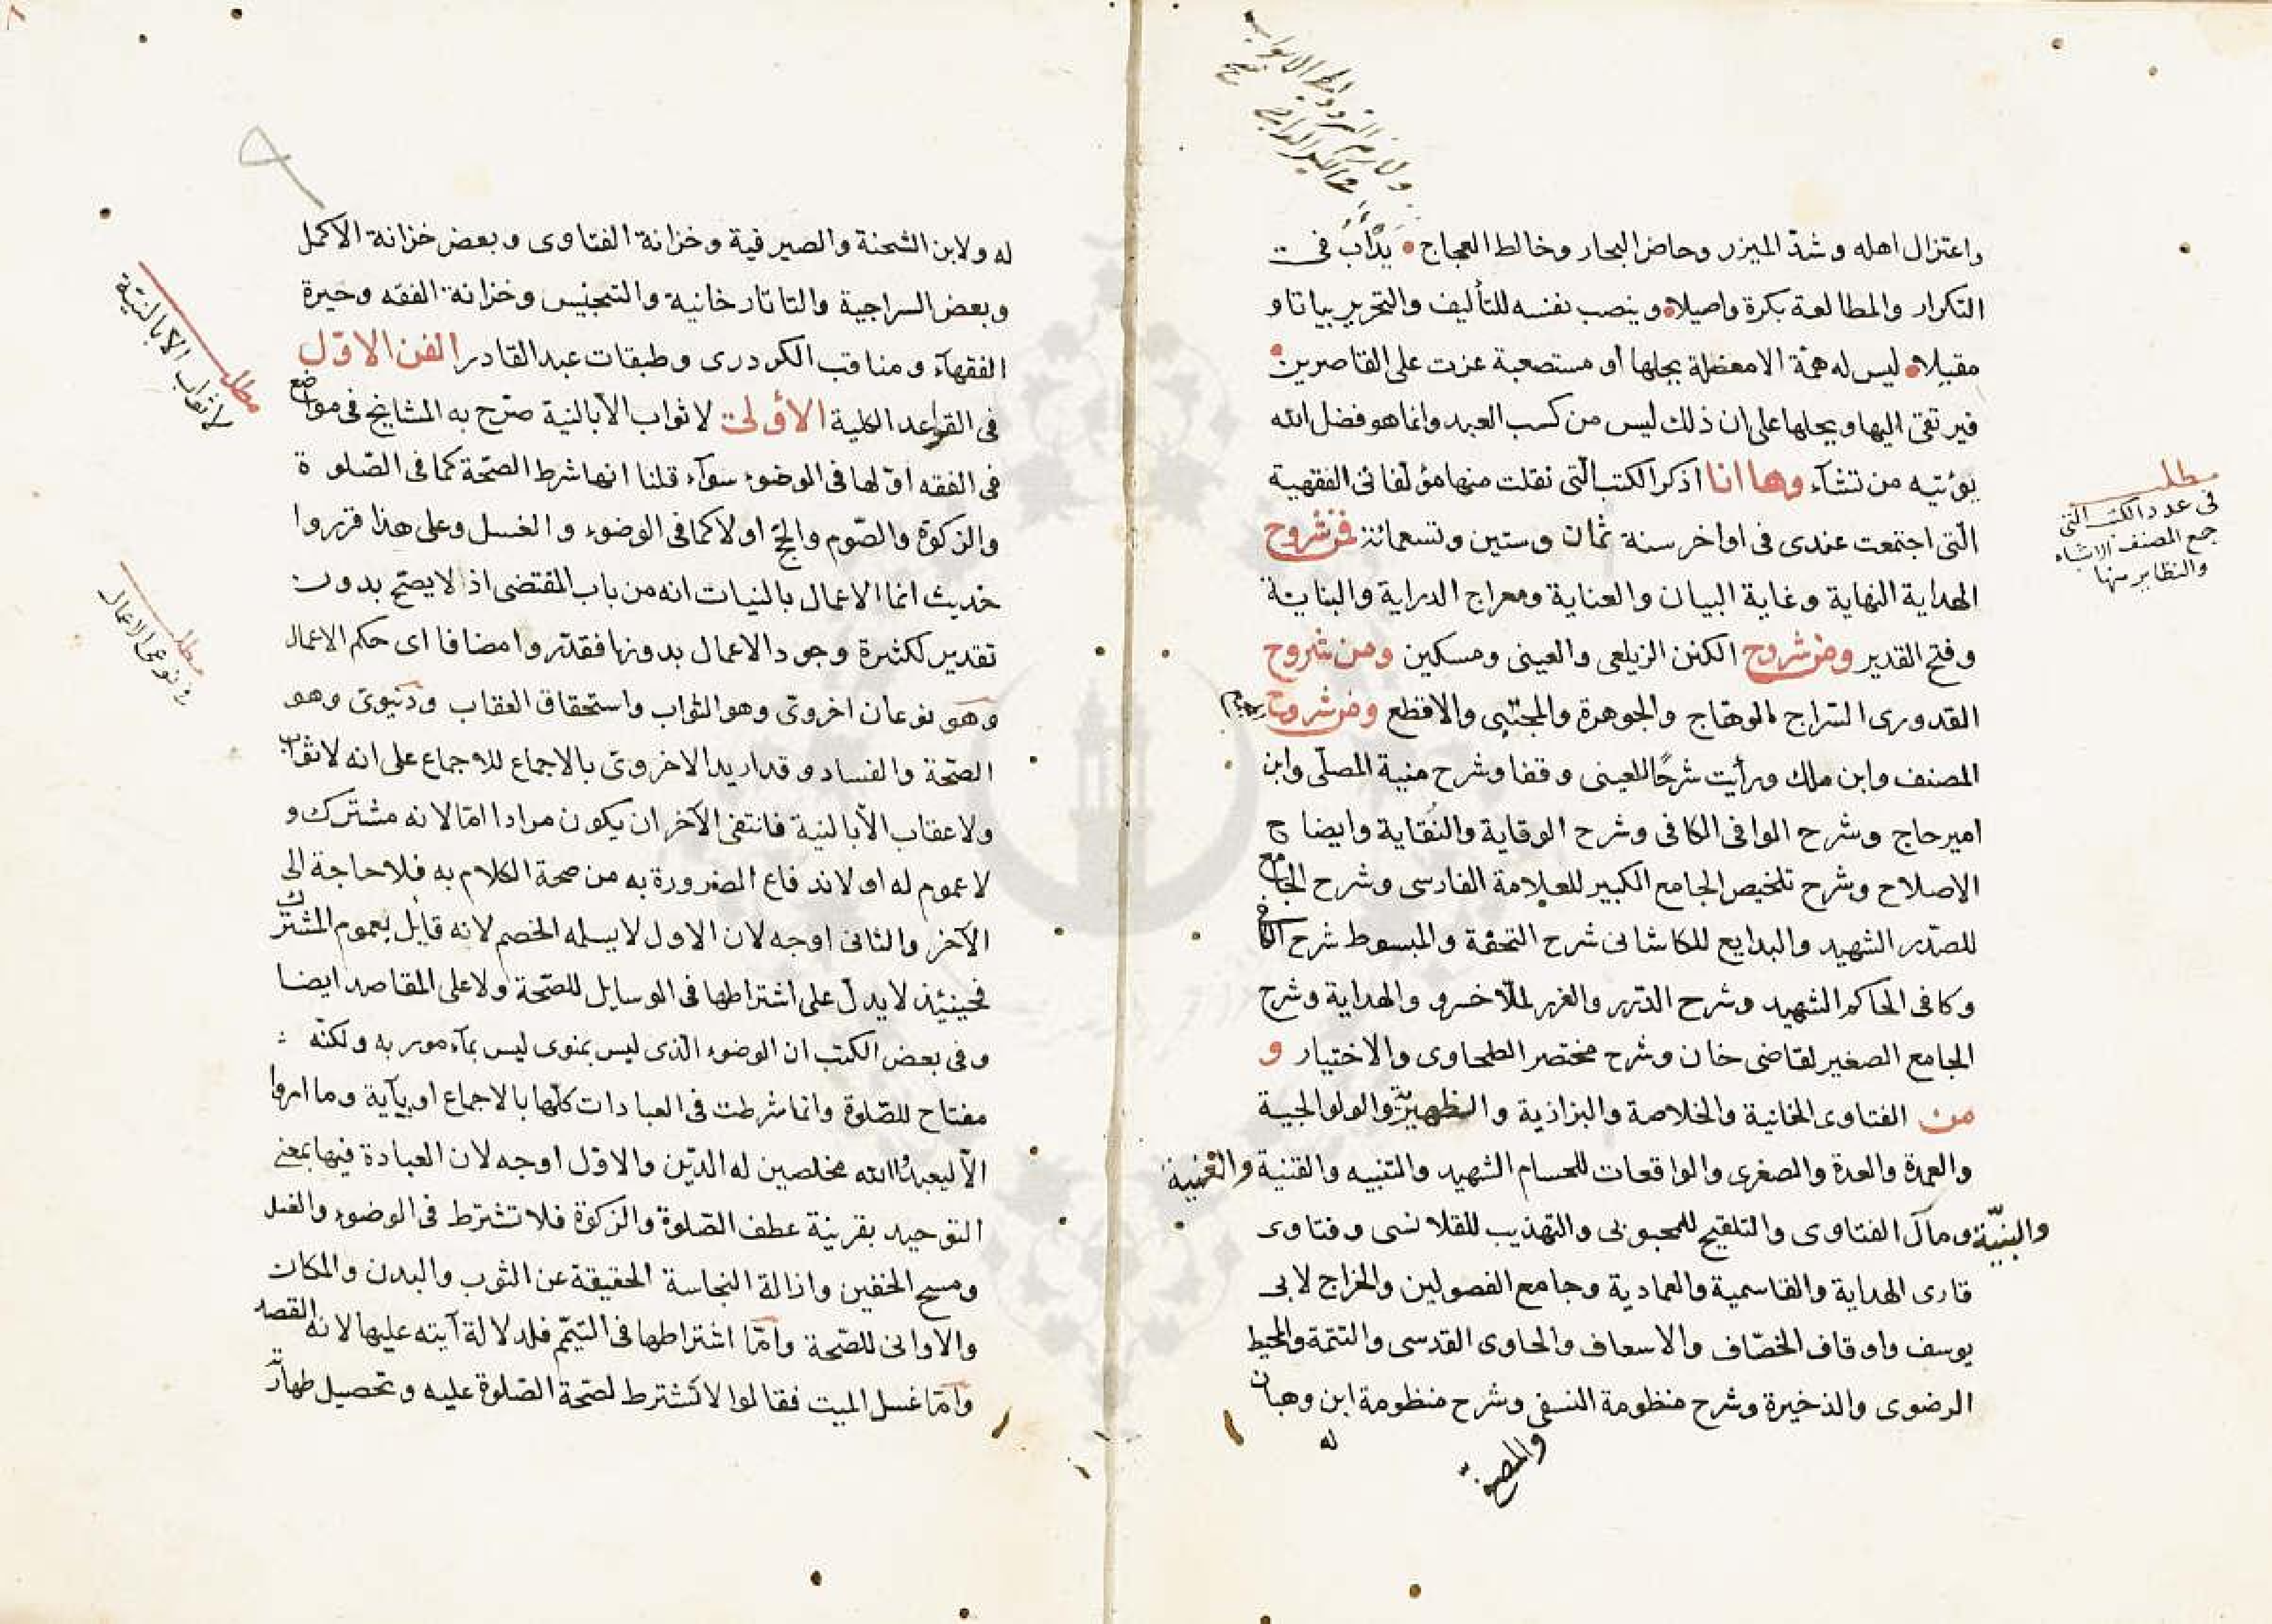 واعتزال اهله وشدّ الميزر وحاض البحار وخالط العجاج يدْأب فى
التكرار والمطالعة بكرة واصيلا وينصب نفسه للتأليف والتحرير بياتا و
مقيلا ليس له همّة الا معضلة يحلها أو مستصعبة عزت على القاصرين
فيرتقى اليها ويحلها على ان ذلك ليس من كسب العبد وانما هو فضل الله
يؤتيه من تشآء وها انا اذكر الكتب التى نقلت منها مؤلفاتى الفقهية
التى اجتمعت عندى فى اواخر سنة ثمان وستين وتسعمائة فمن شروح
الهداية النهاية وغاية البيان والعناية ومعراج الدراية والبناية
وفتح القدير ومن شروح الكنز الزيلعى والعينى ومسكين ومن شروح
القدورى السّراج الوهّاج والجوهرة والمجتبى والاقطع ومن شروح
المصنف وابن ملك ورأيت شرحًا للعينى وقفا وشرح منية المصلّى وابن
اميرحاج وشرح الوافى الكافى وشرح الوقاية والنُقاية وايضاح
الاصلاح وشرح تلخيص الجامع الكبير للعلامة الفارسى وشرح الجامع
للصّدر الشهيد والبدايع للكاشانى شرح التحفة والمبسوط شرح الكافى
وكافى الحاكم الشهيد وشرح الدّرر والغرر لملّا خسرو والهداية وشرح
الجامع الصغير لقاضى خان وشرح مختصر الطحاوى والاختيار و
من الفتاوى الخانية والخلاصة والبزازية والظهيريّة والولوالجية
والعمدة والعدة والصغرى والواقعات للحسام الشهيد والتنبيه والقنية والغنية
والبنيّة ومآل الفتاوى والتلقيح للمحبوبى والتهذيب للقلانسى وفتاوى
قارى الهداية والقاسمية والعمادية وجامع الفصولين والخراج لابى
يوسف واوقاف الخصّاف والاسعاف والحاوى القدسى والتتمّة والمحيط
الرضوى والذخيرة وشرح منظومة النسفى وشرح منظومة ابن وهبان
له
مطلب
فى عدد الكتب التى
جمع المصنف الاشباه
والنظاير منها
له ولابن الشحنة والصيرفية وخزانة الفتاوى وبعض خزانة الاكمل
وبعض السراجية والتاتارخانية والتجنيس وخزانة الفقه وحيرة
الفقهآء ومناقب الكردرى وطبقات عبد القادر الفن الاوّل
فى القواعد الكلية الأولى لا ثواب الّا بالنية صرّح به المشايخ فى مواضع
فى الفقه اوّلها فى الوضوء سوآء قلنا انها شرط الصّحّة كما فى الصّلوة
والزكوة والصّوم والحجّ اولا كما فى الوضوء والغسل وعلى هذا قرّروا
حديث انما الاعمال بالنيات انه من باب المقتضى اذ لا يصحّ بدون
تقدير لكثرة وجود الاعمال بدونها فقدّروا مضافا اى حكم الاعمال
وهو نوعان اخروىّ وهو الثواب واستحقاق العقاب ودنيوىّ وهو
الصّحّة والفساد وقد اريد الاخروىّ بالاجماع للاجماع على انه لا ثواب
ولا عقاب الّا بالنية فانتفى الآخر ان يكون مرادا امّا لانه مشترك و
لا عموم له او لاندفاع الضرورة به من صحة الكلام به فلا حاجة الى
الآخر والثانى اوجه لان الاول لا يسلمه الخصم لانه قايل بعموم المشترك
فحينئذ لا يدلّ على اشتراطها فى الوسايل للصّحّة ولا على المقاصد ايضا
وفى بعض الكتب ان الوضوء الّذى ليس بمنوى ليس بمآمور به ولكنّه
مفتاح للصّلوة وانما شرطت فى العبادات كلّها بالاجماع او بآية وما امروا
الّا ليعبدُوا الله مخلصين له الدّين والاوّل اوجه لان العبادة فيها بمعنى
التوحيد بقرينة عطف الصّلوة والزكوة فلا تشترط فى الوضوء والغسل
ومسح الخفين وازالة النجاسة الحقيقة عن الثوب والبدن والمكان
والاوانى للصّحة وامّا اشتراطها فى التيمّم فلدلالة آيته عليها لانه القصد
وامّا غسل الميت فقالوا لا تشترط لصّحة الصّلوة عليه وتحصيل طهارة
مطلب
لا ثواب الّا بالنيّة
مطلب
فى نوعى الاعمال